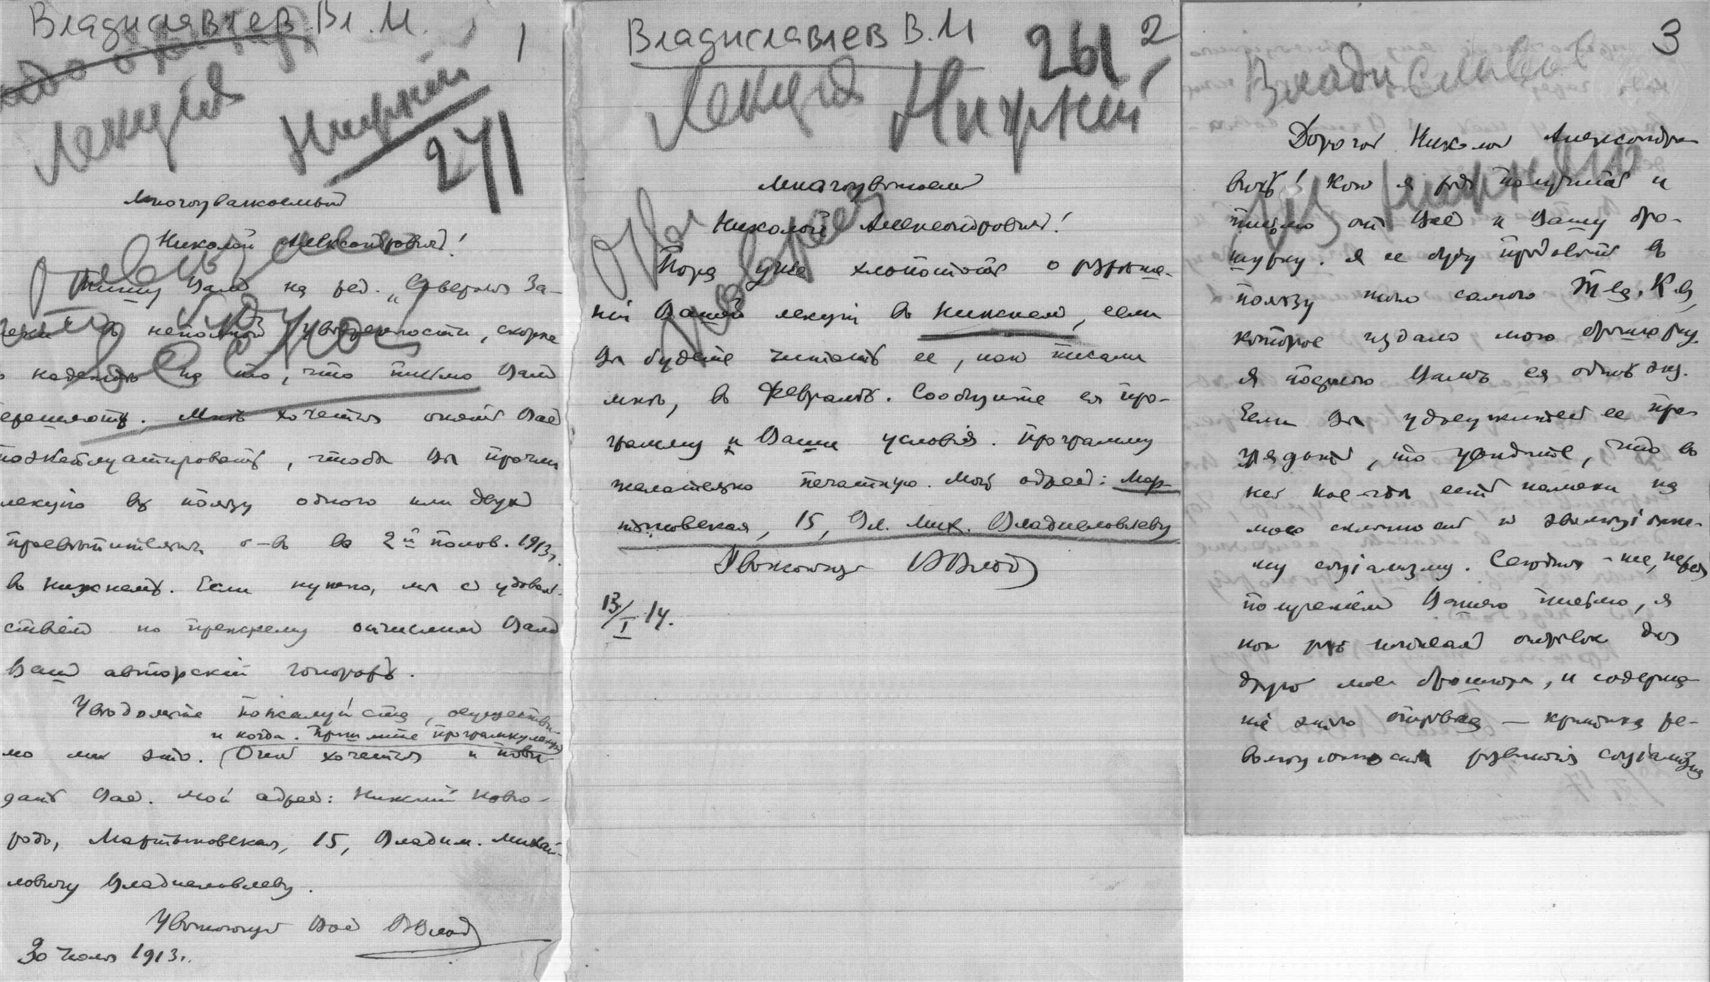 Владиславлев. Вл. М.
1
надо
Лекция
Нижний
271
Многоуважаемый
Николай Александрович!
Пишу Вам на ред. „Северных За-
в неполной уверенности, скорее
в надежде на то, что письмо Вам
перешлютъ. Мнѣ хочется опять Вас
поэксплуатировать, чтобы Вы прочли
лекцію въ пользу одного или двухъ
просветительн. о-въ во 2й полов. 1913 г.
въ Нижнемъ. Если нужно, мы с удоволь-
ствіем по прежнему отчислим Вам
Ваш авторскій гонораръ.
Уведомьте пожалуйста, осуществи-
и когда. Пришлите программу лекціи
мо ли это. Очень хочется и пови-
дать Вас. Мой адрес: Нижний Новго-
родъ, Мартыновская, 15, Владим. Михай-
ловичу Владиславлеву.
Уважающий Вас ВВлад
30 Іюля 1913 г.
Владиславлев В. М
261
2
Лекция
Нижний
Многоуважаемый
Николай Александрович!
Пора уже хлопотать о разреше-
ніи Вашей лекціи в Нижнем, если
Вы будете читать ее, как писали
мнѣ, в Феврале. Сообщите ея про-
грамму и Ваши условія. Программу
желательно печатную. Мой адрес: Мар-
тыновская, 15, Вл. Мих. Владиславлеву
Уважающий ВВлад
13/I 14.
3
Владиславлев
Дорогой Николай Александро-
вичъ! Как я рад получить и
письмо от Вас и Вашу бро-
шюру. Я ее буду продавать в
пользу того самого Т-ва,
которое издало мою брошюру.
Я посылаю Вамъ ея один экз.
Если Вы удосужитесь ее про-
глядеть, то увидите, что в
ней кое-где есть намеки на
мою склонность к эволюціонно-
му соціализму. Сегодня-же, перед
полученіем Вашего письма, я
как раз писал отрывок для
другой моей брошюры, и содержа-
ніе этого отрывка — критика ре-
волюціонности развитія соціализма